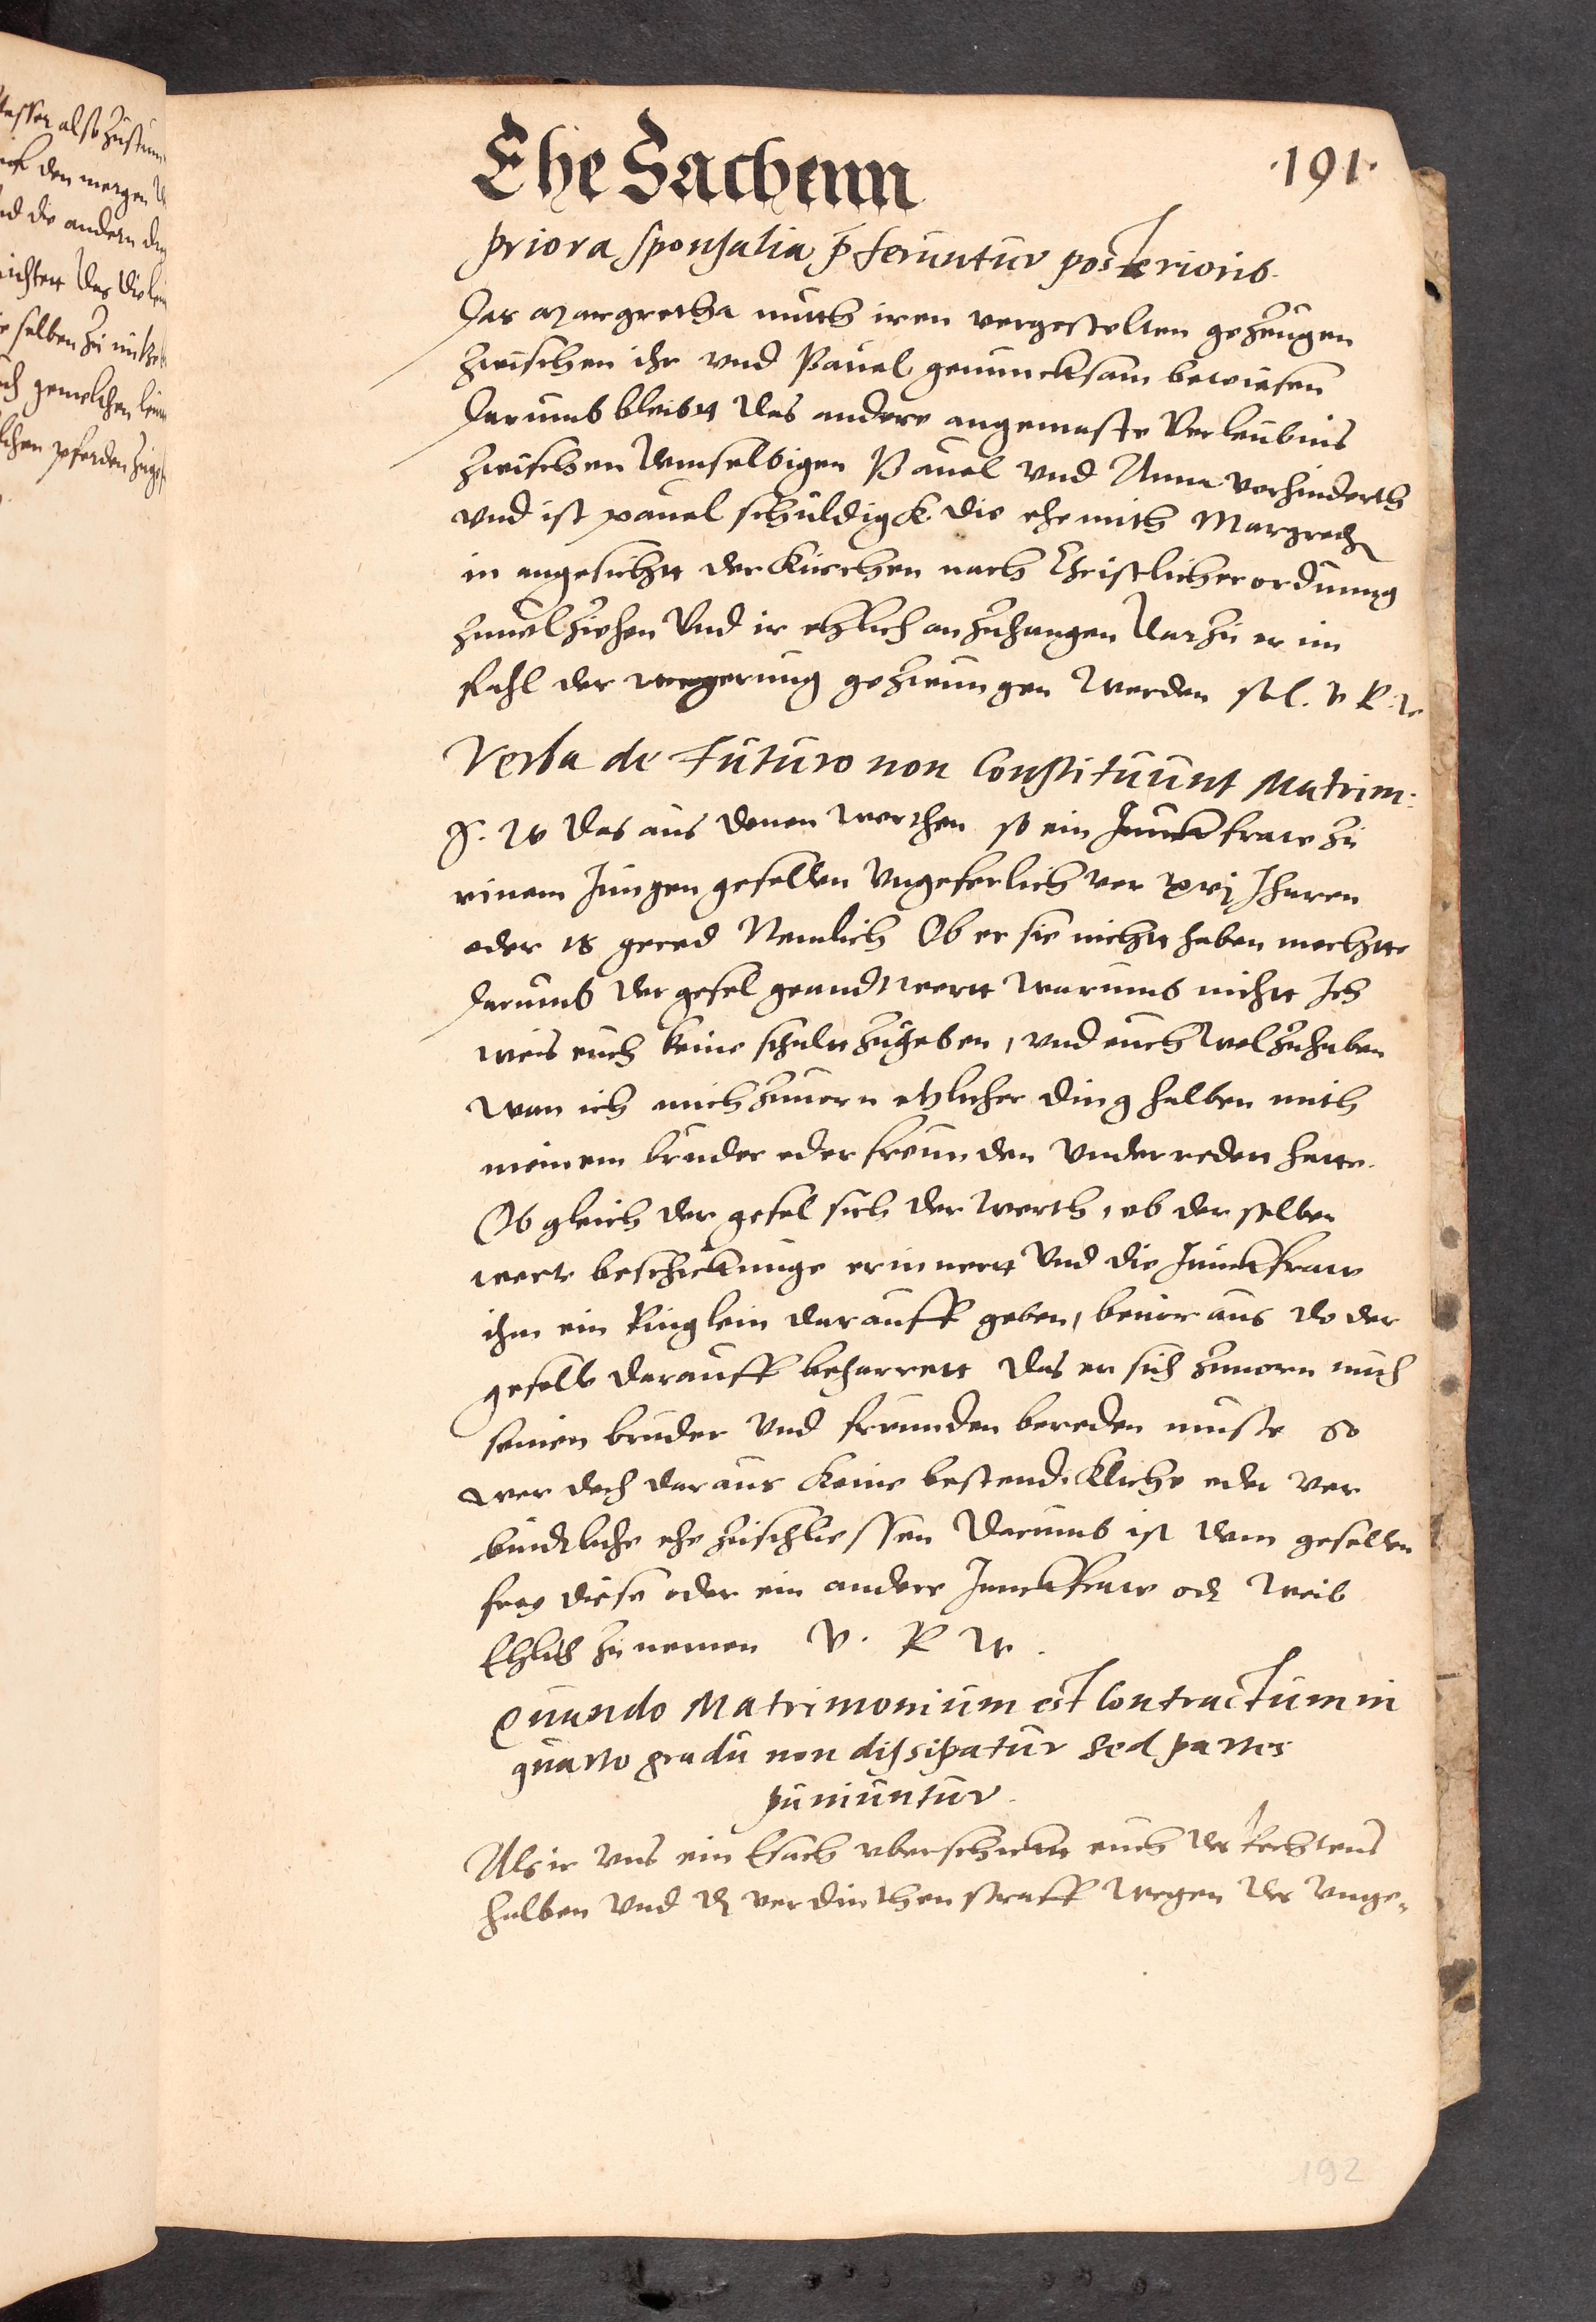 Ehe Sachenn
·191·
priora sponsalia pferuntur posterioris.
Hat Margretha mitth iren vorgestelten gezeugen
zwischen ihr vnd Pauel genuncksam bewiesen
Darumb bleibtt das andere angemaste Verleubnis
zwischen demselbigen Pauel vnd Anna verhinderth
vnd ist pauel schuldigk die ehe mith Margreth
in angesichtt der Kirchen nach Christlicher ordnung
zuuolziehen Vnd ir ehlich an zuhangen Darzu er im
fahl der wegerung gezwungen werden sol. V. R. W.
Verba de Futuro non Constituunt Matrim:
das aus denen worthen so ein Junckfraw zu
einem Jungen gesellen Vngeferlich vor xvj Jharen
oder 18 gered Nemlich Ob er sie nicht haben mochtte
Darumb der gesel geandtwortt warumb nichtt Ich
weis euch keine schultt zugeben, vnd euch wol zuhaben
wan ich mich zuuorn etzlicher ding halben mith
meinem bruder oder freunden Vnderredett hatte.
Ob gleich der gesel sich der worth, ob der selben
wort beschickunge erinnertt Vnd die Junckfraw
ihm ein Ringlein darauff geben, beuor aus do der
geselle darauff beharrett das er sich zuuorn mith
seinen bruder Vnd freunden bereden muste So
wer doch daraus keine bestendickliche oder ver
bindtliche ehe zuschliessen Darumb ist dem gesellen
frey diese oder ein andere Junckfraw od Weib
Ehlich zu nemen V. R. W.
Quando Matrimonium est Contractum in
quarto gradu non dissipatur sed partes
puniuntur.
Als ir vns ein Esach vberschickett euch des Rechtens
halben Vnd d verdinthen straff wegen des Vnge-
192